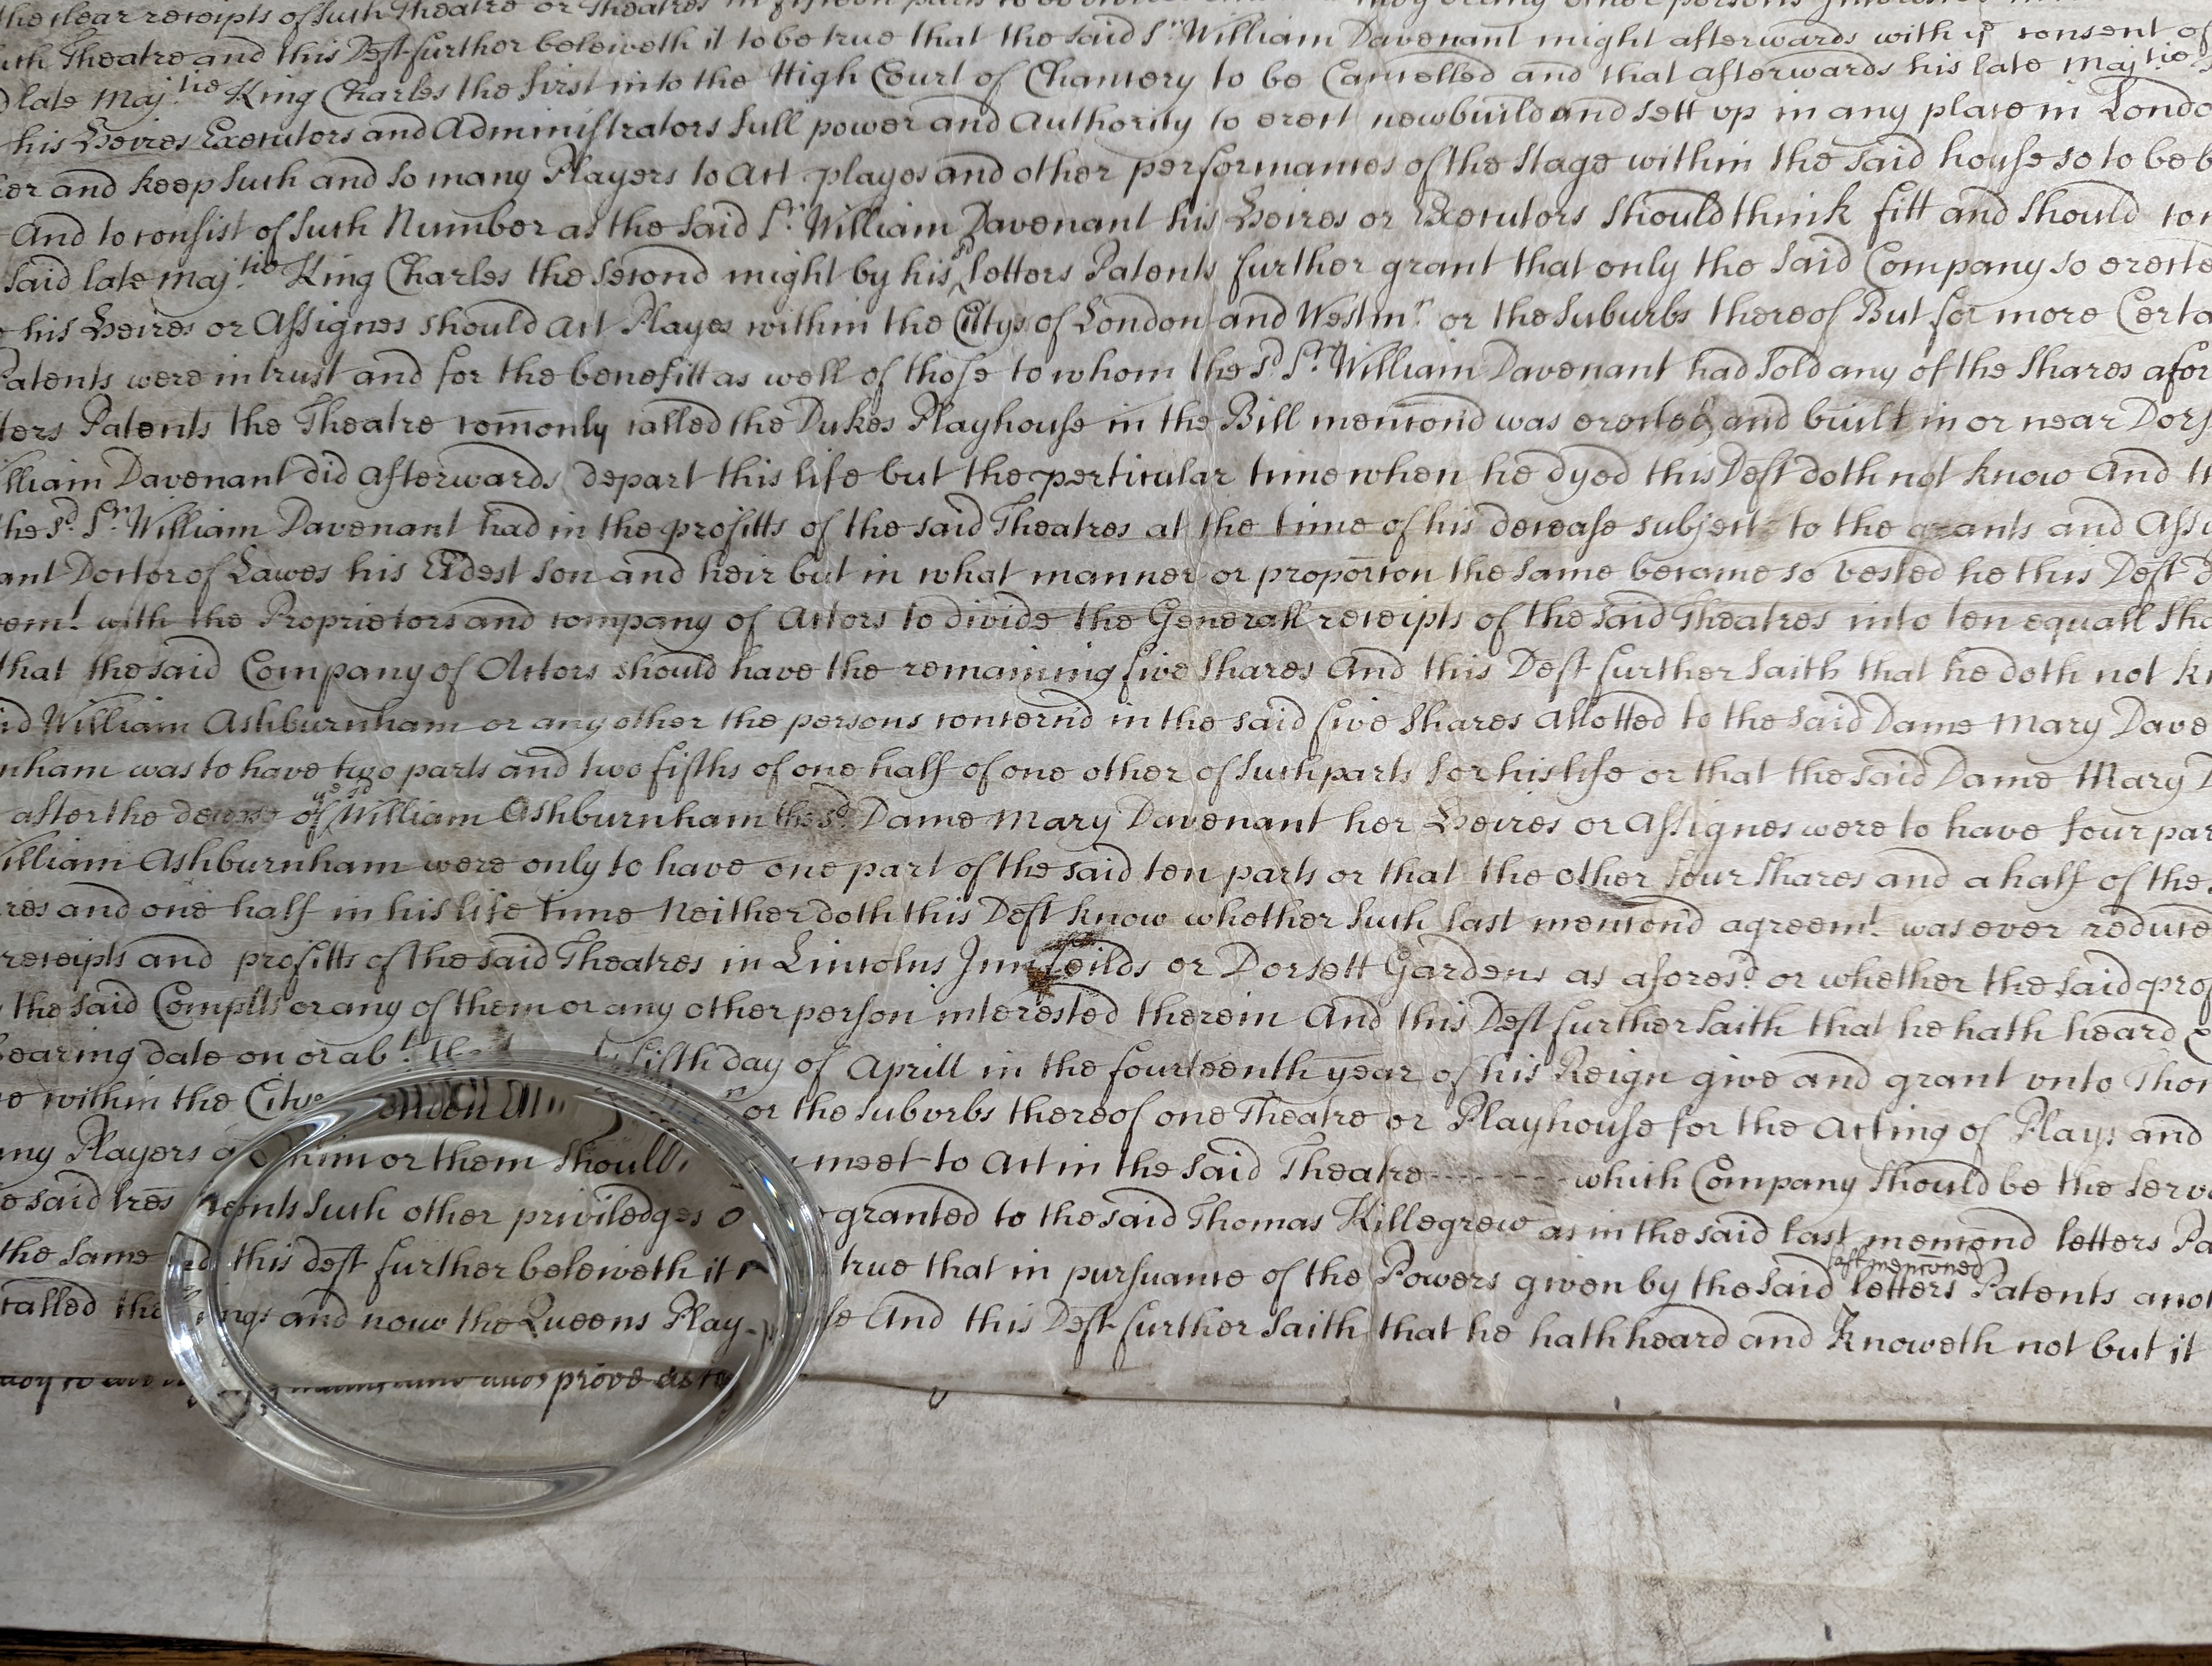 the clear receipts of such Theatre or Theatres in fifteen parts to be
such Theatre and this Deft further beleiveth it to be true that the said Sr. William Davenant might afterwards with ye consent of
late Majtie King Charles the first into the High Court of Chancery to be Cancelled and that afterwards his late Majtie
his Heires Executors and Administrators full power and Authority to erect new build and sett vp in any place in Londo
and keep such and so many Players to Act playes and other performances of the Stage within the said house so to be b
And to consist of such Number as the said Sr. William Davenant his Heires or Executors should think fitt and should con
said late Majtie King Charles the second might by his sd letters Patents further grant that only the said Company so erecte
his Heires or Assignes should Act Playes within the Citys of London and Westmr. or the Suburbs thereof But for more Certa
Patents were in trust and for the benefitt as well of those to whom the sd. Sr. William Davenant had sold any of the Shares afor
ters Patents the Theatre com̄only called the Dukes Playhouse in the Bill menc̄ond was erected and built in or near Dors
illiam Davenant did afterwards depart this life but the perticular time when he dyed this Deft doth not know And
the sd. Sr. William Davenant had in the profitts of the said Theatres at the time of his decease subject to the grants and Assi
ant Doctor of Lawes his Eldest son and heir but in what manner or proporc̄on the same became so vested he this Deft d
eemt. with the Proprietors and company of Actors to divide the Generall receipts of the said Theatres into ten equall Sha
that the said Company of Actors should have the remaining five Shares And this Deft further saith that he doth not k
id William Ashburnham or any other the persons concern'd in the said five Shares Allotted to the said Dame Mary Dave
nham was to have two parts and two fifths of one half of one other of such parts for his life or that the said Dame Mary D
after the decease of ye sd William Ashburnham the sd. Dame Mary Davenant her Heires or Assignes were to have four par
illiam Ashburnham were only to have one part of the said ten parts or that the other four Shares and a half of the
res and one half in his life time Neither doth this Deft know whether such last menc̄ond agreemt. was ever reduce
receipts and profitts of the said Theatres in Lincolns Inn feilds or Dorsett Gardens as aforesd. or whether the said prof
the said Complts or any of them or any other person interested therein And this Deft further saith that he hath heard
bearing date on or abt. fifth day of Aprill in the fourteenth year of his Reign give and grant vnto Thom
within the Citys or the suburbs thereof one Theatre or Playhouse for the Acting of Plays and
ny Players as him or them should meet to Act in the said Theatre --------- which Company should be the Serv
said lres Patents such other priviledges granted to the said Thomas Killegrew as in the said last menc̄ond letters Pa
the same and this deft further beleiveth it true that in pursuance of the Powers given by the said last menc̄oned letters Patents anot
called the Kings and now the Queens Play-house And this Deft further saith that he hath heard and knoweth not but it
prove as